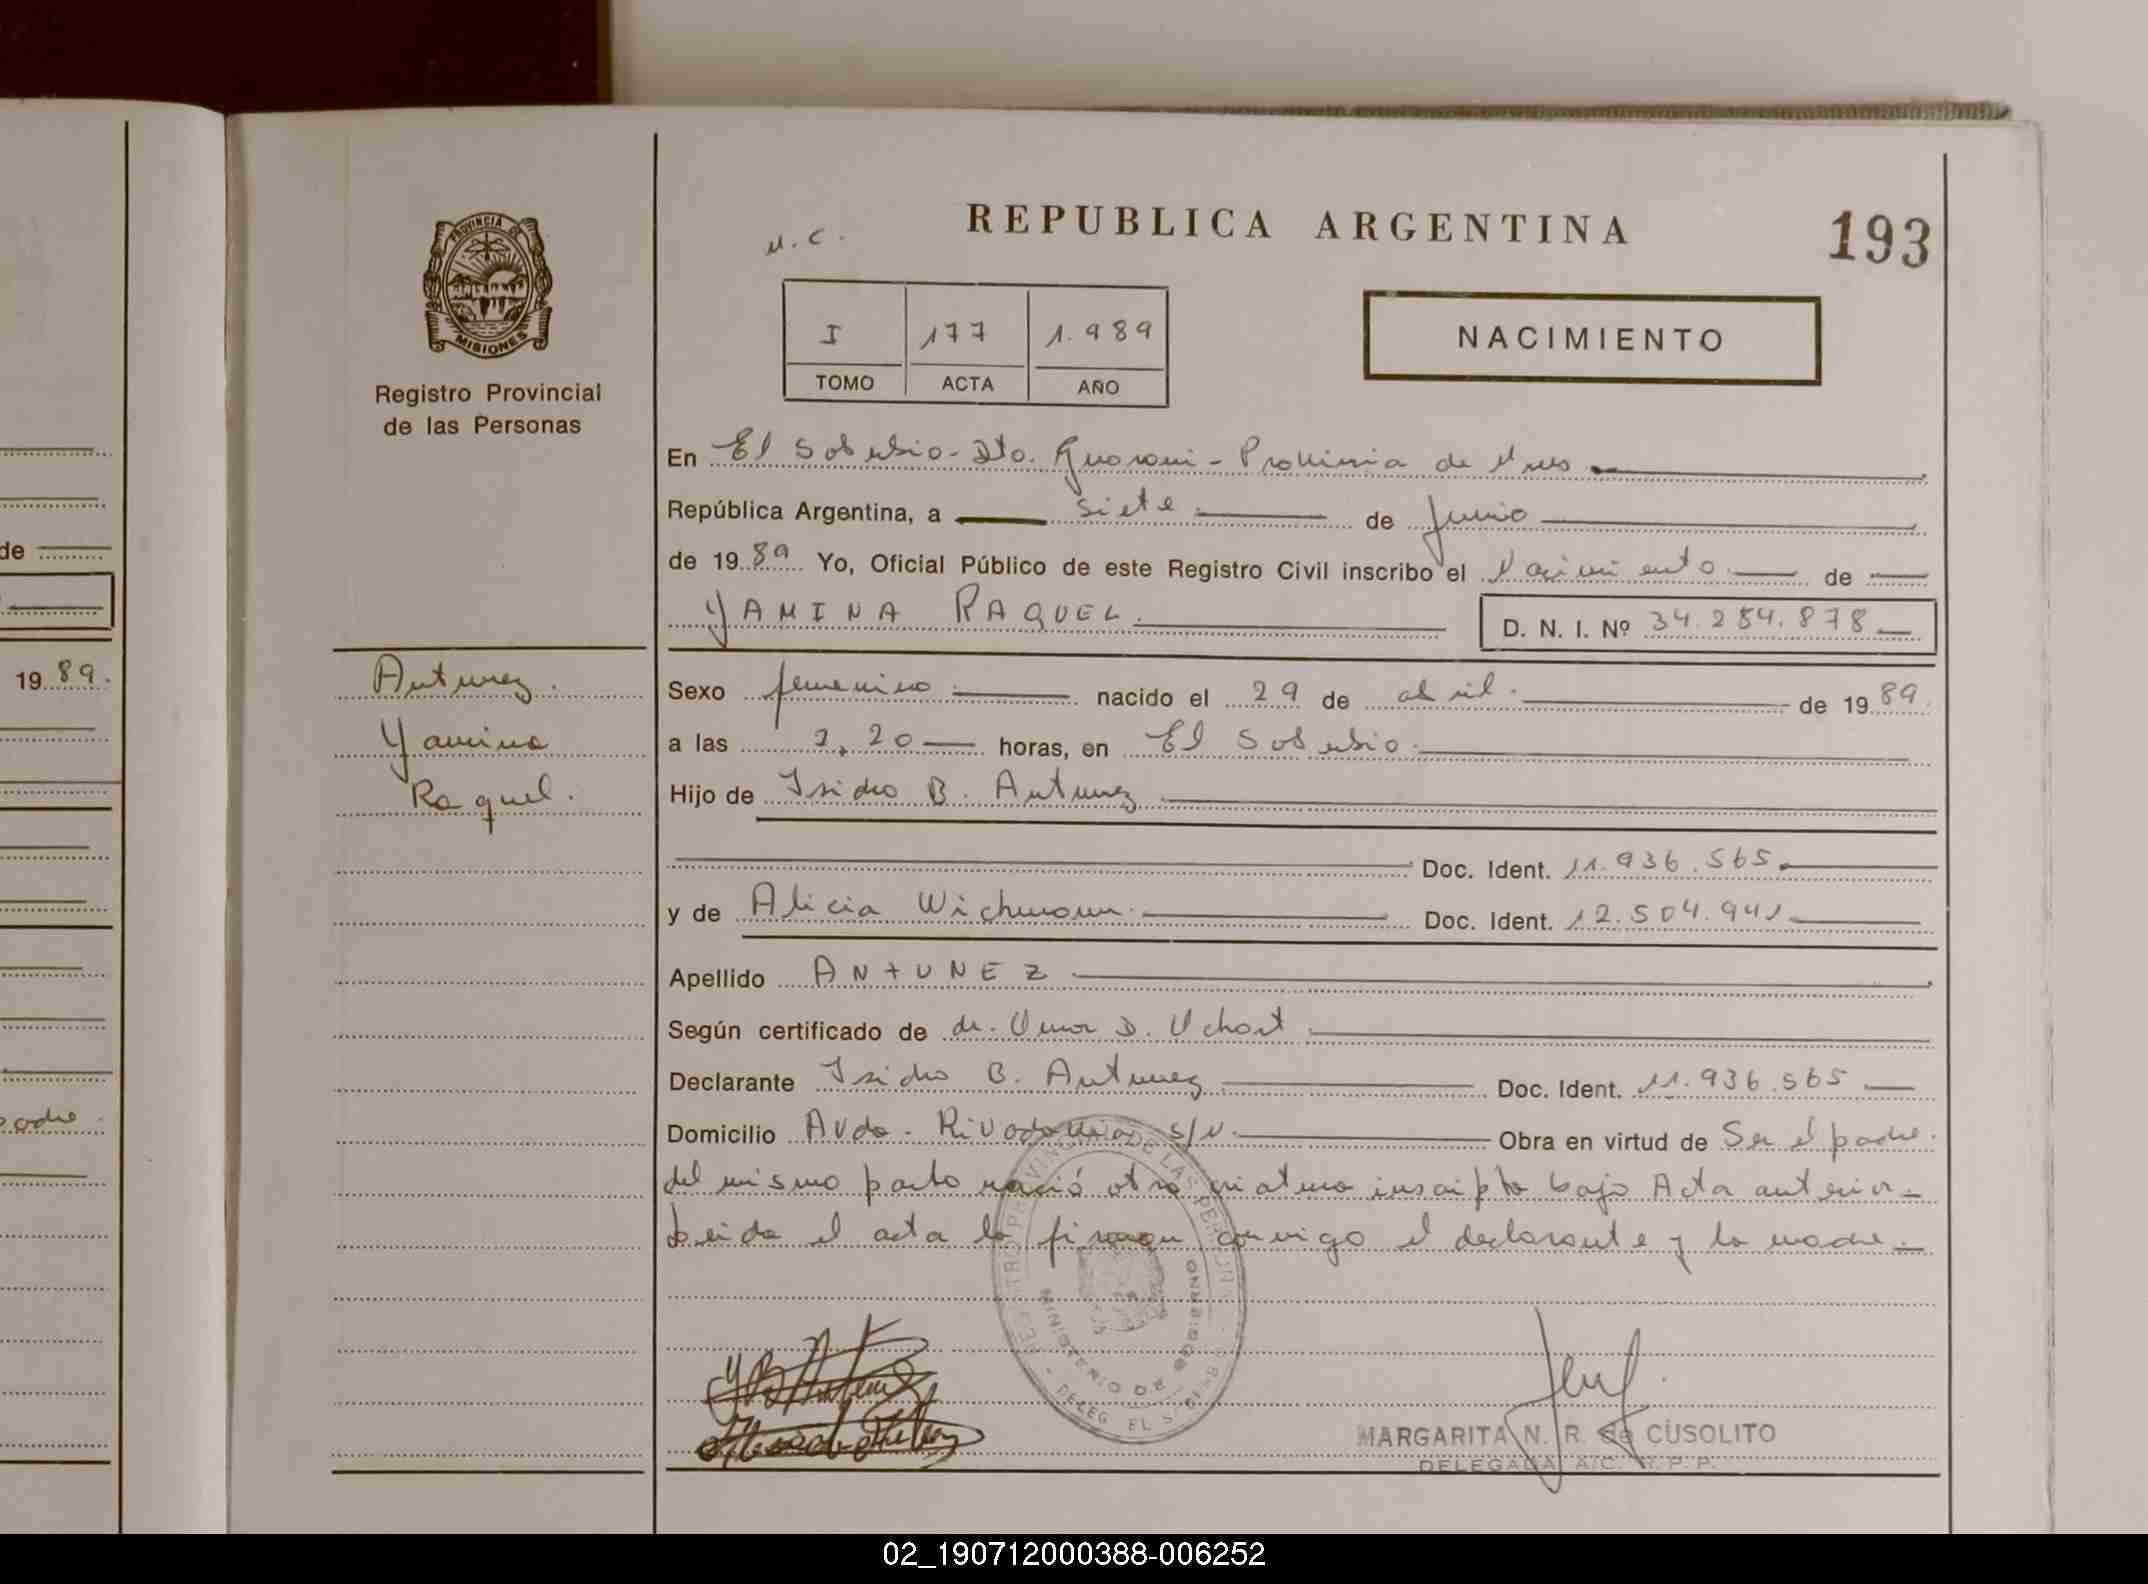 PROVINCIA DE
MISIONES
Registro Provincial
de las Personas
Antunez.
Yamina
Raquel.
de
1989.
padre
REPUBLICA ARGENTINA
193
N.C.
I 177 1.989
TOMO ACTA AÑO
NACIMIENTO
En El Soberbio - Dto. Guarani - Provincia de Mnes
República Argentina, a siete de Junio
de 1989 Yo, Oficial Público de este Registro Civil inscribo el Nacimiento de
YAMINA RAQUEL.
D. N. I. Nº 34.284.878
Sexo femenino nacido el 29 de abril. de 1989.
a las 2,20 horas, en El Soberbio.
Hijo de Isidro B. Antunez
Doc. Ident. 11.936.565.
y de Alicia Wichmann. Doc. Ident. 12.504.941
Apellido ANTUNEZ
Según certificado de dr. D.
Declarante Isidro B. Antunez Doc. Ident. 11.936.565
Domicilio Avda. Rivadavia s/n. Obra en virtud de Ser el padre.
del mismo parto nació otra criatura inscripta bajo Acta anterior-
Leida el acta la firman conmigo el declarante y la madre-
MINISTERIO DE GOBIERNO
MARGARITA N. R. de CUSOLITO
DELEGADA A/C. R. P. P.
02_190712000388-006252